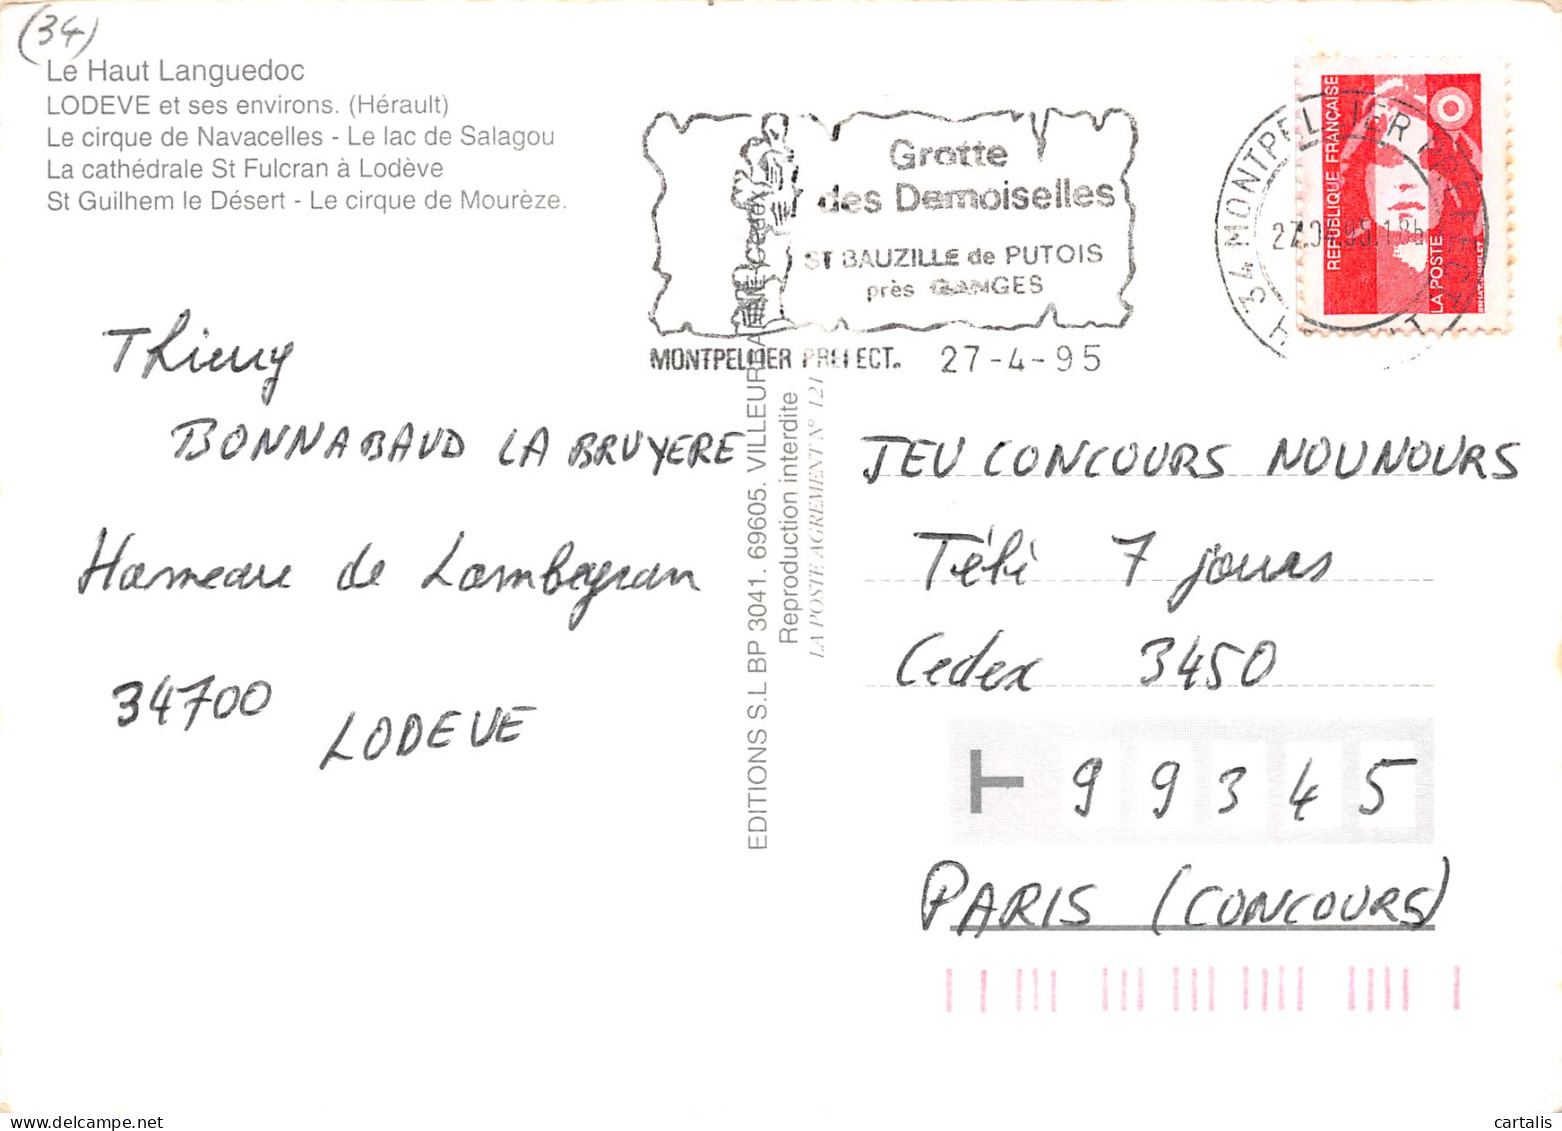 (34)
Le Haut Languedoc
LODEVE et ses environs. (Hérault)
Le cirque de Navacelles - Le lac de Salagou
La cathédrale St Fulcran à Lodève
St Guilhem le Désert - Le cirque de Mourèze.
Grotte
des Demoiselles
ST BAUZILLE de PUTOIS
près GANGES
MONTPELLIER PREFECT. 27-4-95
34 MONTPELLIER
HERAULT
REPUBLIQUE FRANÇAISE
LA POSTE
Thierry
BONNABAUD LA BRUYERE
Hameau de Lambeyran
34700
LODEVE
EDITIONS S.L BP 3041. 69605. VILLEURBANNE Cedex
Reproduction interdite
LA POSTE AGREMENT N° 121
JEU CONCOURS NOUNOURS
Télé 7 jours
Cedex 3450
99345
PARIS (CONCOURS)
cartalis